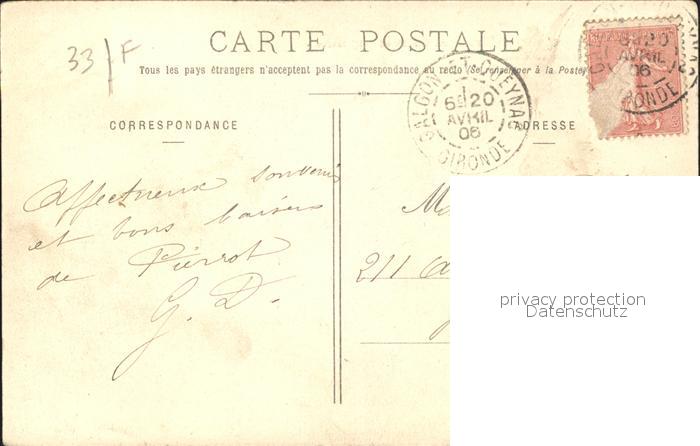 33/F
CARTE POSTALE
Tous les pays étrangers n'acceptent pas la correspondance au recto (Se renseigner à la Poste)
CORRESPONDANCE
ADRESSE
SALGON-ET-GUEYNAC
6 20
AVRIL
06
GIRONDE
6 20
AVRIL
06
GIRONDE
Affectueux souvenir
et bons baisers
de Pierrot
G. D.
211
privacy protection
Datenschutz